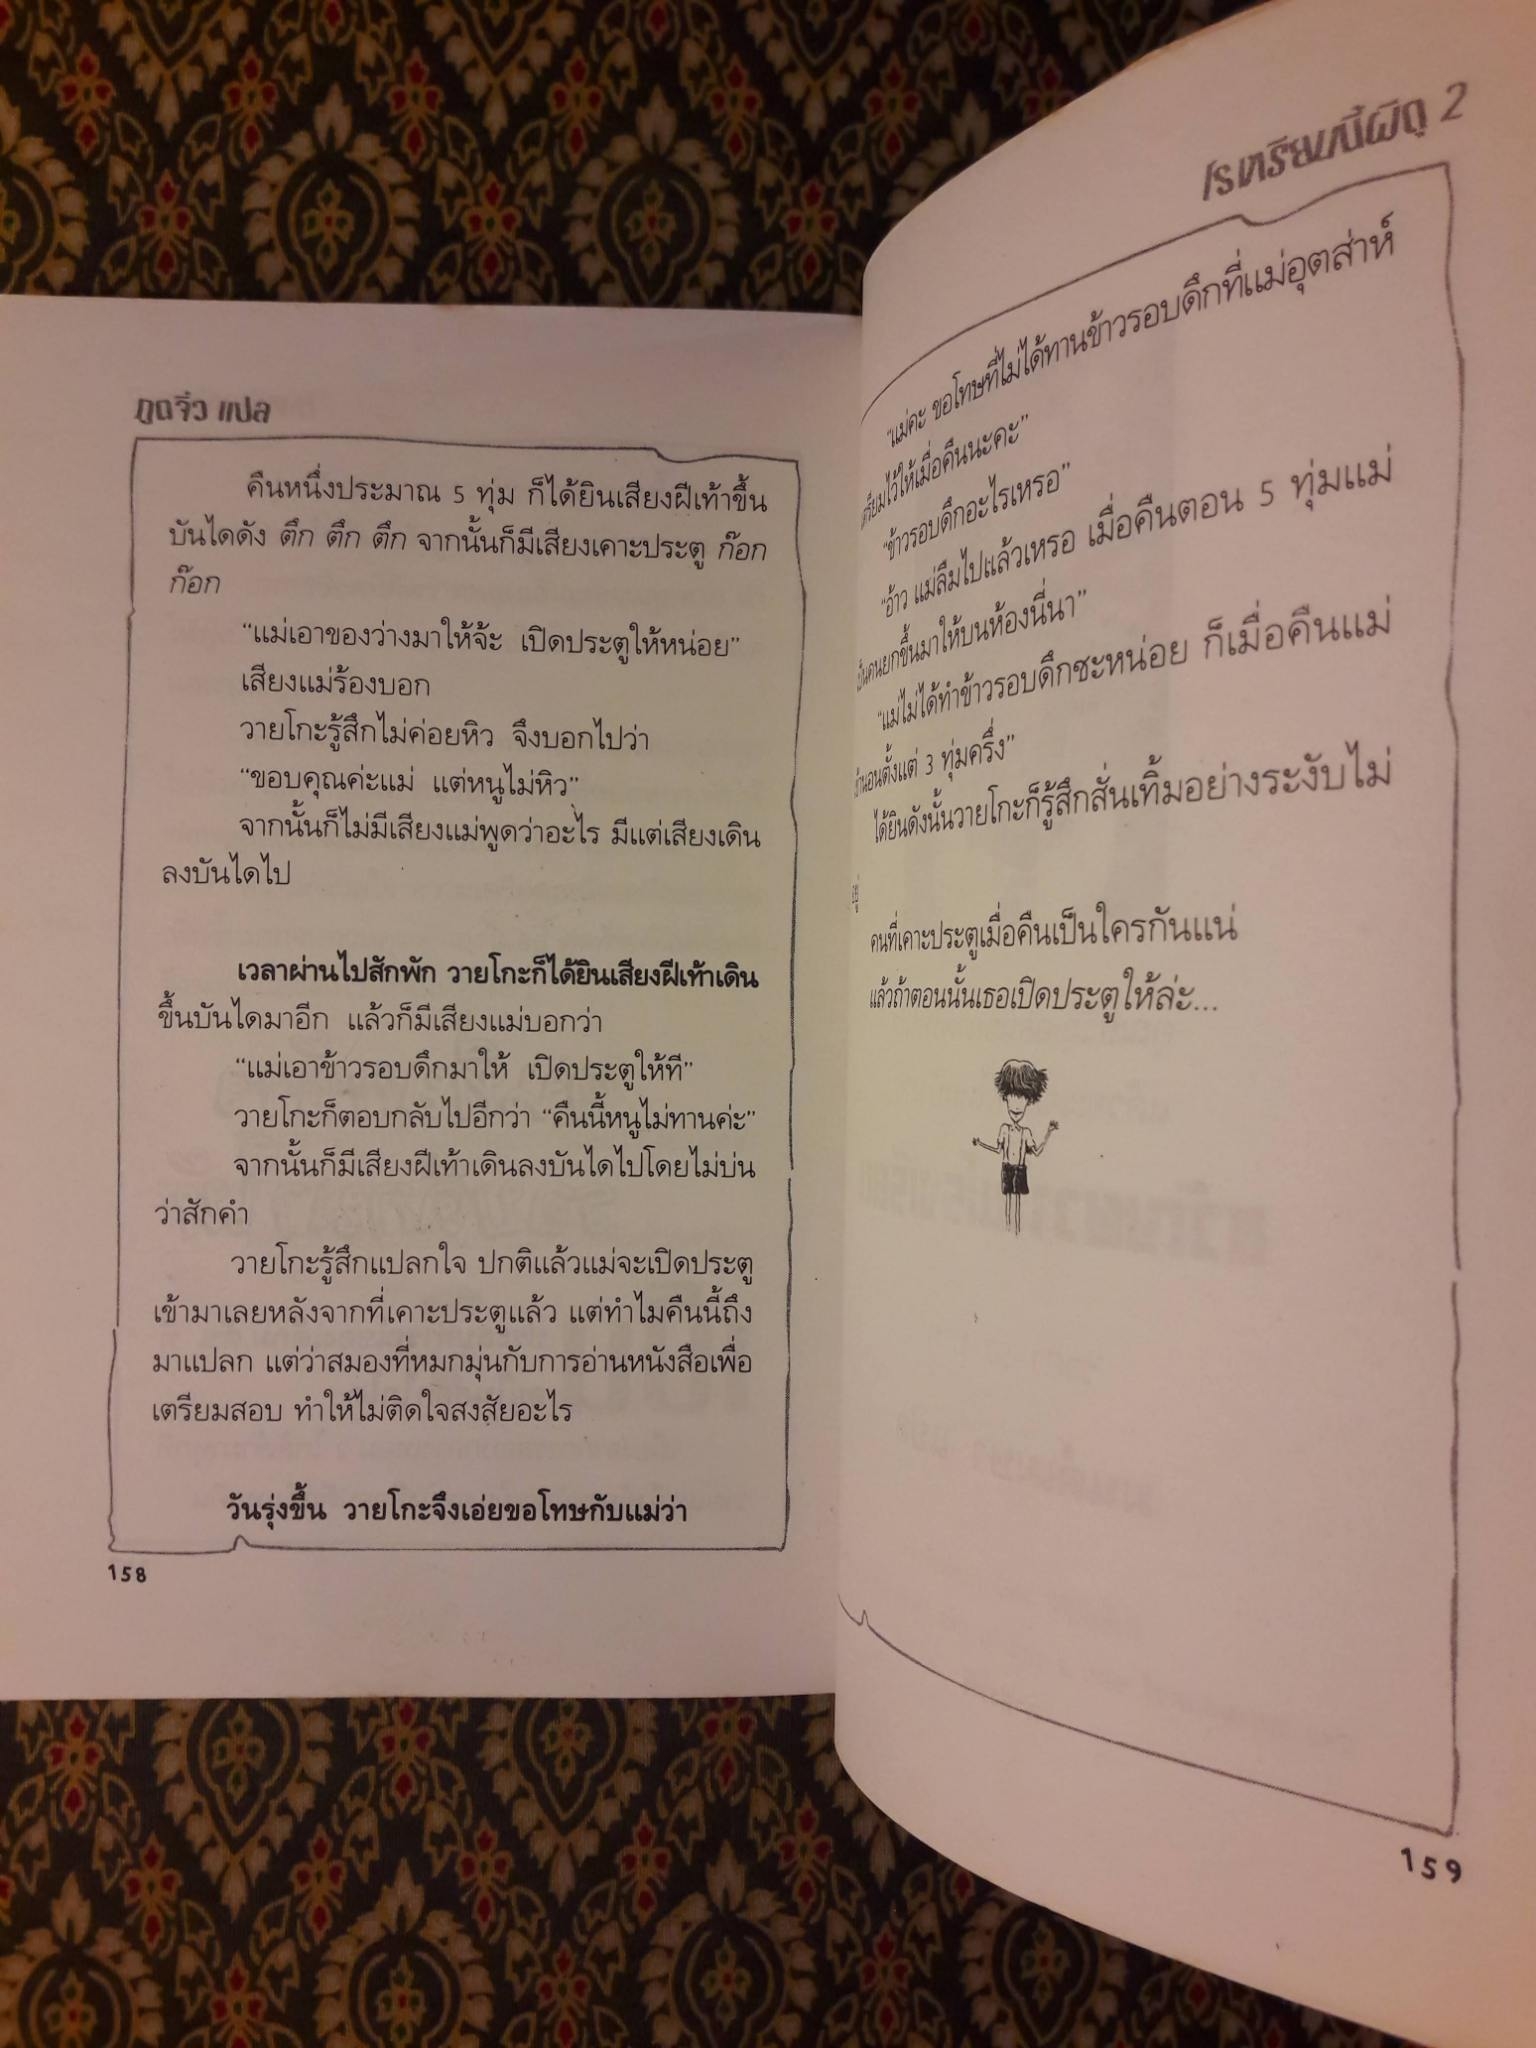 ภูตจิ๋ว แปล
คืนหนึ่งประมาณ 5 ทุ่ม ก็ได้ยินเสียงฝีเท้าขึ้น
บันไดดัง ตึก ตึก ตึก จากนั้นก็มีเสียงเคาะประตู ก๊อก
ก๊อก
“แม่เอาของว่างมาให้จ้ะ เปิดประตูให้หน่อย”
เสียงแม่ร้องบอก
วายโกะรู้สึกไม่ค่อยหิว จึงบอกไปว่า
“ขอบคุณค่ะแม่ แต่หนูไม่หิว”
จากนั้นก็ไม่มีเสียงแม่พูดว่าอะไร มีแต่เสียงเดิน
ลงบันไดไป
เวลาผ่านไปสักพัก วายโกะก็ได้ยินเสียงฝีเท้าเดิน
ขึ้นบันไดมาอีก แล้วก็มีเสียงแม่บอกว่า
“แม่เอาข้าวรอบดึกมาให้ เปิดประตูให้ที”
วายโกะก็ตอบกลับไปอีกว่า “คืนนี้หนูไม่ทานค่ะ”
จากนั้นก็มีเสียงฝีเท้าเดินลงบันไดไปโดยไม่บ่น
ว่าสักคำ
วายโกะรู้สึกแปลกใจ ปกติแล้วแม่จะเปิดประตู
เข้ามาเลยหลังจากที่เคาะประตูแล้ว แต่ทำไมคืนนี้ถึง
มาแปลก แต่ว่าสมองที่หมกมุ่นกับการอ่านหนังสือเพื่อ
เตรียมสอบ ทำให้ไม่ติดใจสงสัยอะไร
วันรุ่งขึ้น วายโกะจึงเอ่ยขอโทษกับแม่ว่า
158
โรงเรียนนี้ผีดุ 2
“แม่คะ ขอโทษที่ไม่ได้ทานข้าวรอบดึกที่แม่อุตส่าห์
เตรียมไว้ให้เมื่อคืนนะคะ”
“ข้าวรอบดึกอะไรเหรอ”
“อ้าว แม่ลืมไปแล้วเหรอ เมื่อคืนตอน 5 ทุ่มแม่
เป็นคนยกขึ้นมาให้บนห้องนี่นา”
“แม่ไม่ได้ทำข้าวรอบดึกซะหน่อย ก็เมื่อคืนแม่
เข้านอนตั้งแต่ 3 ทุ่มครึ่ง”
ได้ยินดังนั้นวายโกะก็รู้สึกสั่นเทิ้มอย่างระงับไม่
อยู่
คนที่เคาะประตูเมื่อคืนเป็นใครกันแน่
แล้วถ้าตอนนั้นเธอเปิดประตูให้ล่ะ...
159